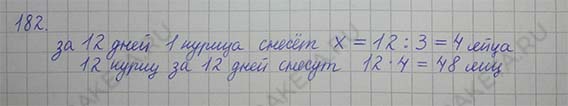 182.
за 12 дней 1 курица снесёт x = 12 : 3 = 4 яйца
12 куриц за 12 дней снесут 12 · 4 = 48 яиц